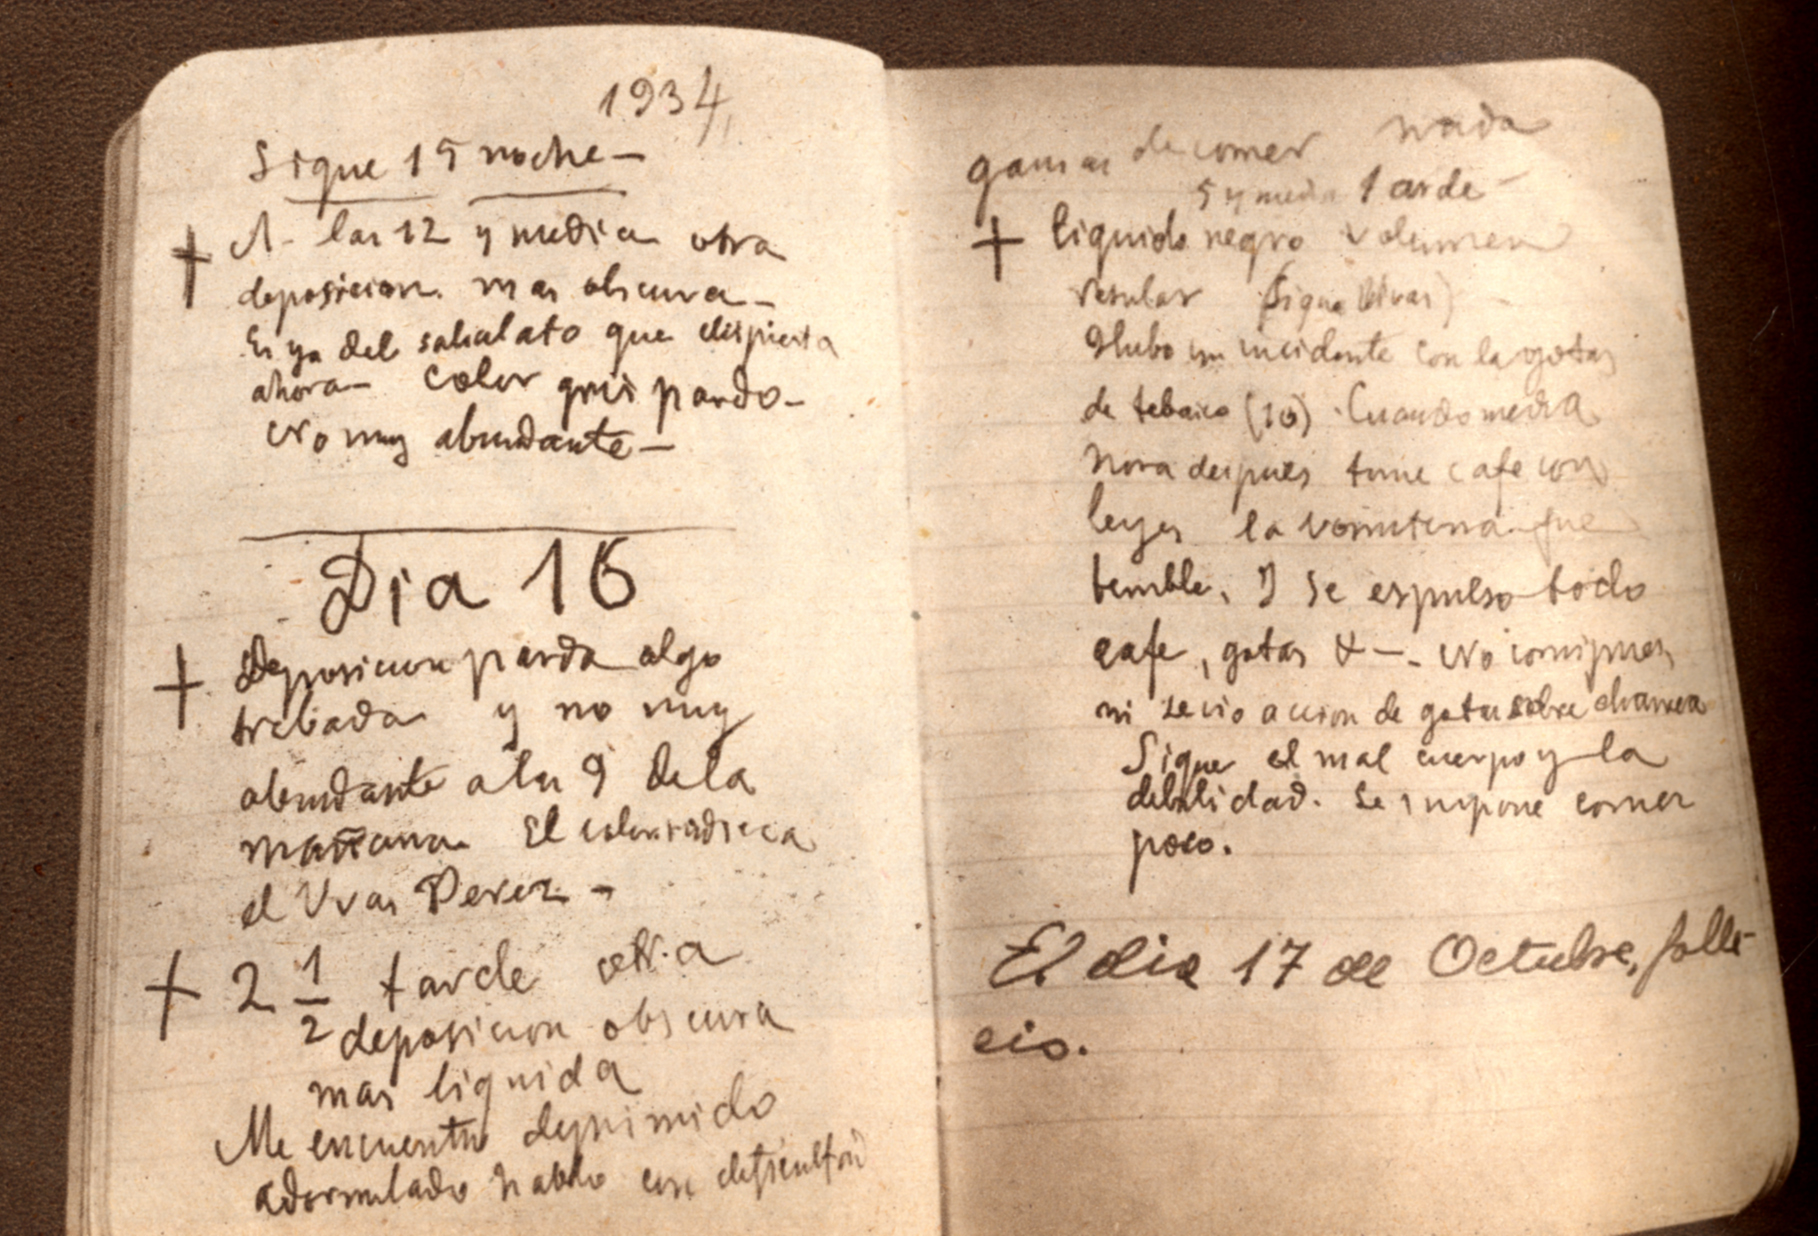 1934
Sigue 15 noche—
A las 12 y media otra
deposicion mas obscura—
Es ya del salicilato que dispierta
ahora— Color gris pardo—
No muy abundante—
Dia 16
Deposicion parda algo
trabada y no muy
abundante a las 9 de la
mañana. El color indica
el Uvas Perez—
2 1/2 tarde otra
deposicion obscura
mas liquida
Me encuentro deprimido
adormilado hablo con dificultad
nada
ganas de comer
5 y media tarde—
Liquido negro volumen
regular (Sigue Uvas)
Hubo un incidente con las gotas
de tebaico (10). Cuando media
hora despues tome cafe con
leyes la vomitera fue
terrible, y se espulso todo
cafe, gotas &—. No
ni se vio accion de gotas sobre
Sigue el mal cuerpo y la
debilidad. Se impone comer
poco.
El dia 17 de Octubre, falle-
cio.